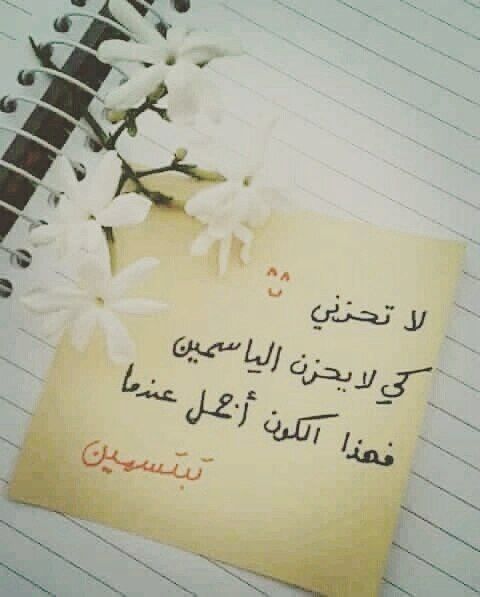 لا تحزني ^^
كي لا يحزن الياسمين
فهذا الكون أجمل عندما
تبتسمين